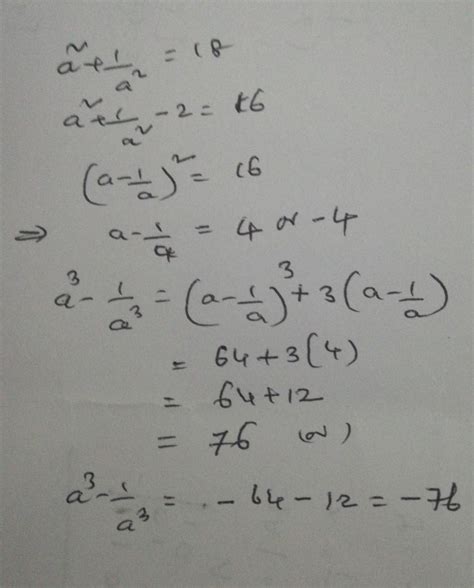 a² + 1/a² = 18
a² + 1/a² - 2 = 16
(a - 1/a)² = 16
⇒ a - 1/a = 4 or - 4
a³ - 1/a³ = (a - 1/a)³ + 3(a - 1/a)
= 64 + 3(4)
= 64 + 12
= 76 (or)
a³ - 1/a³ = - 64 - 12 = - 76